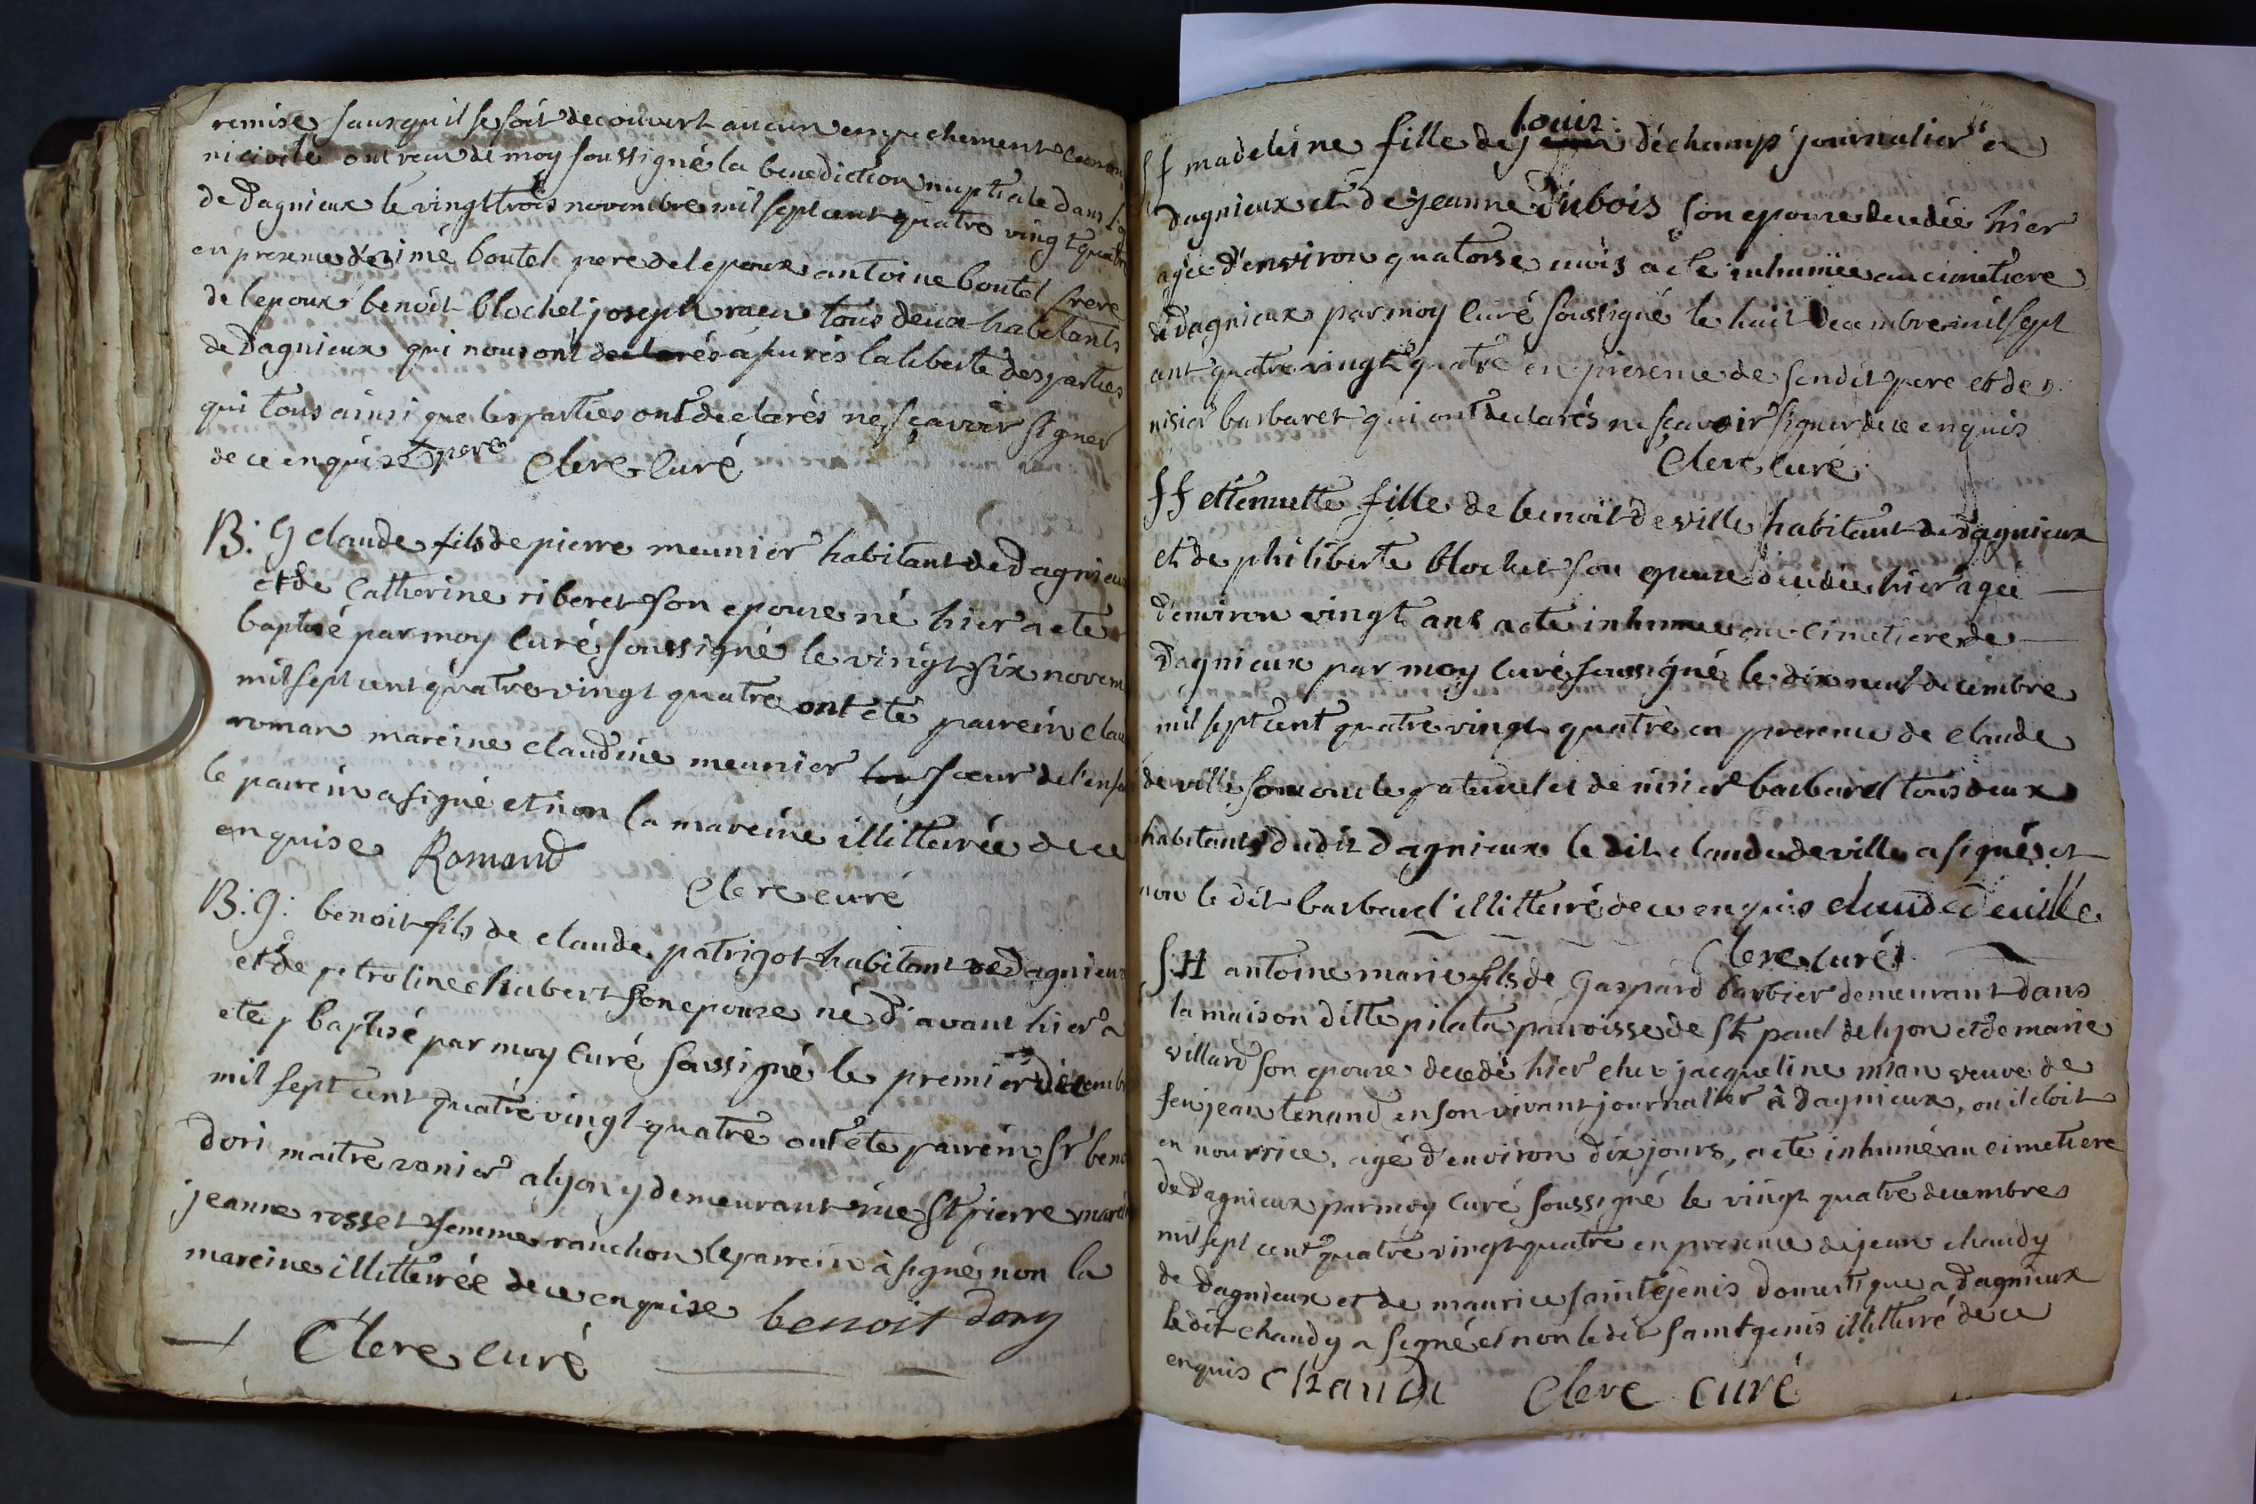 remise sans qu'il se soit decouvert aucun enpechement
ni civile ont recu de moy soussigné la benediction nuptiale dans
de dagnieux le vingt trois novembre mil sept cent quatre vingt quatre
en presence d'aimé boutel pere de lepoux antoine boutel frere
de lepoux benoit blochet joseph tous deux habitants
de dagnieux qui nous ont declarés asurés la liberté des parties
qui tous ainsi que les parties ont declarés ne sçavoir signer
de ce enquise pere Clere curé
B: G claude fils de pierre meunier habitant de dagnieux
et de Catherine riberet son epouse né hier a ete
baptisé par moy curé soussigné le vingt six novem
mil sept cent quatre vingt quatre ont été pairein clau
roman mareine claudine meunier sœur de l'enfa
le pairein a signé et non la mareine illitterée de ce
enquise Romand
Clere curé
B: g: benoit fils de claude patrigot habitant de dagnieux
et de petroline chabert son epouse né d'avant hier a
ete baptisé par moy curé soussigné le premier decemb
mil sept cent quatre vingt quatre ont été pairein sr beno
dori maitre à lyon y demeurant rue St pierre marei
jeanne rosset femme ranchon le pairein à signé non la
mareine illitterée de ce enquise benoit dory
Clere curé
louis
Sf madeleine fille de jean déchamp journalier a
dagnieux et de jeanne dubois son epouse decedée hier
agée d'environ quatorse mois a ete inhumée au cimetiere
de dagnieux par moy curé soussigné le huit decembre mil sept
cent quatre vingt quatre en presence de sondit pere et de
nisier barbaret qui ont declarés ne sçavoir signer de ce enquis
Clere curé
Sf ettiennette fille de benoit deville habitant de dagnieux
et de philiberte blochet son epouse decedée hier agée
d'environ vingt ans a ete inhumée au cimetiere de
dagnieux par moy curé soussigné le dix neuf decembre
mil sept cent quatre vingt quatre en presence de claude
deville son oncle paternel et de nisier barbaret tous deux
habitants dudit dagnieux le dit claude deville a signés et
non le dit barbaret illitteré de ce enquis claude deville
Clere curé
S H antoine marie fils de Gaspard barbier demeurant dans
la maison ditte pilata parroisse de St paul de lyon et de marie
villard son epouse decedé hier chez jacqueline mian veuve de
feu jean tenand en son vivant journalier à dagnieux, ou il étoit
en nourrice, agé d'environ dix jours, a ete inhumé au cimetiere
de dagnieux par moy curé soussigné le vingt quatre decembre
mil sept cent quatre vingt quatre en presence de jean chaudy
de dagnieux et de maurice saint genis domestique a dagnieux
le dit chaudy a signé et non le dit saint genis illitterré de ce
enquis Chaudi Clere curé